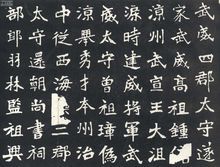 武威四郡太守遂
家武威高祖鍾信
涼州武宣王大沮
渠時建威將軍武
威太守曾祖璋偽
涼舉秀才本州治
中從西海二郡
太守還朝尚書祠
部郎羽林監祖興